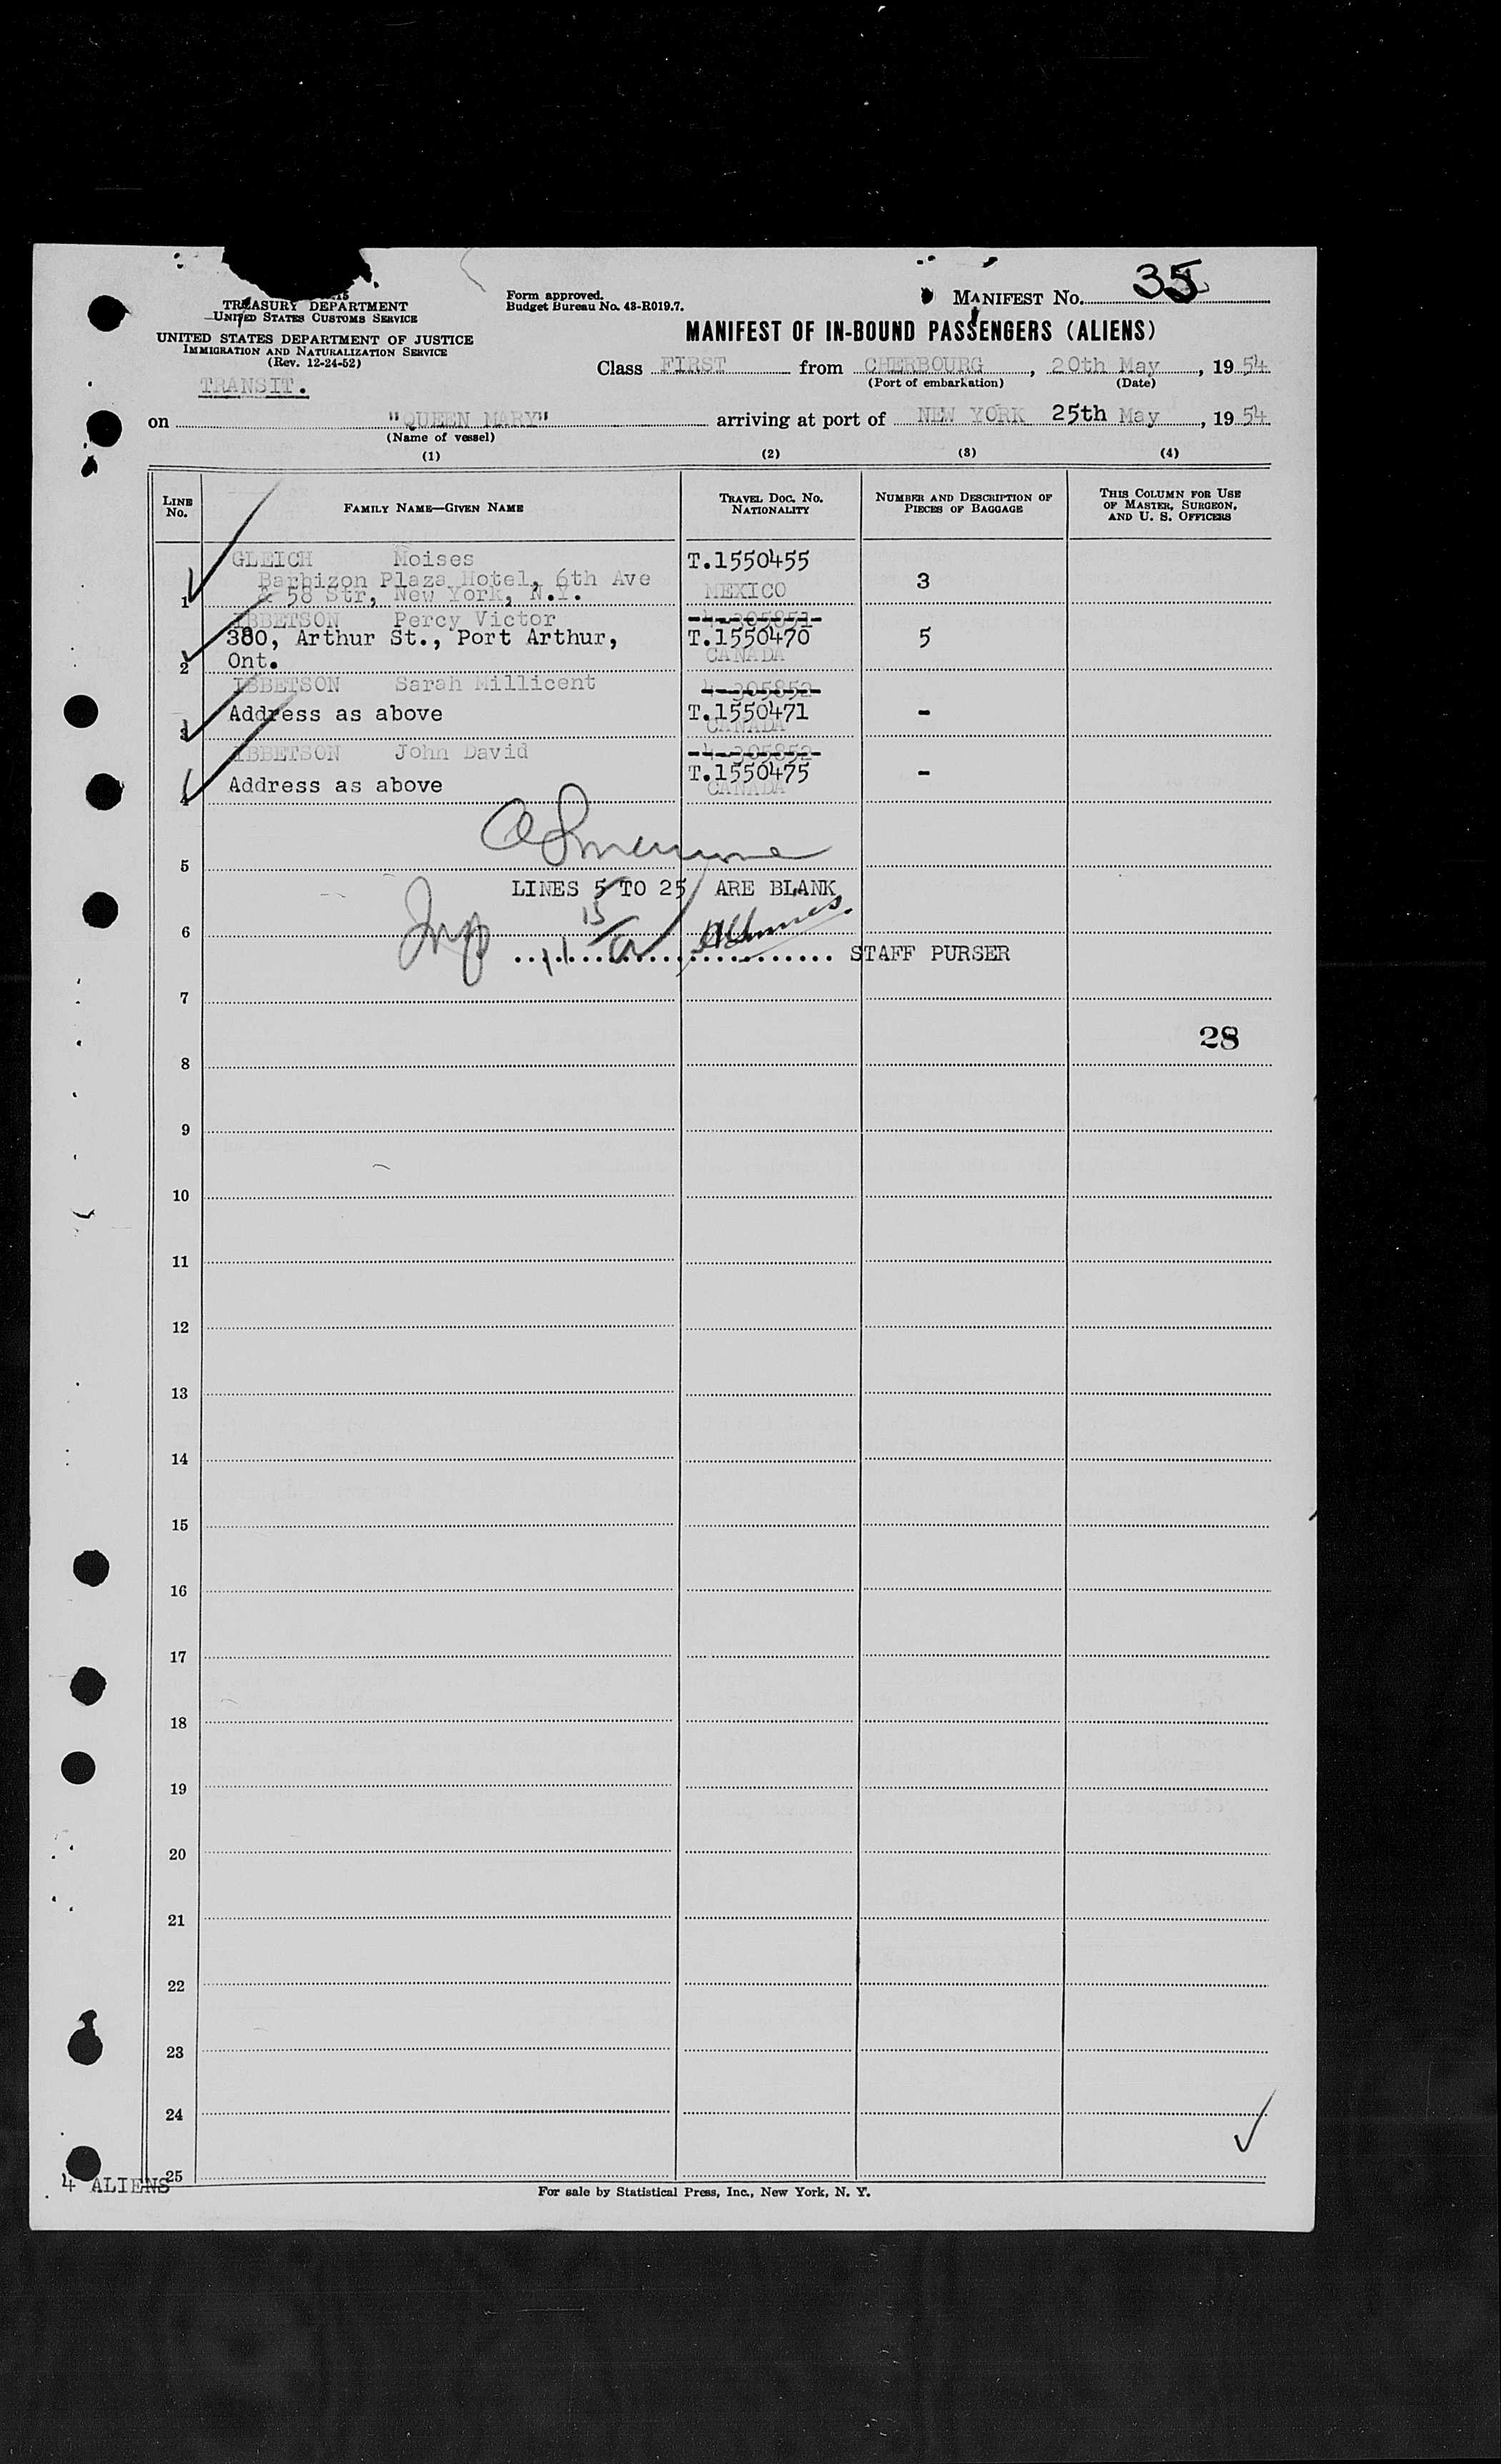 35
TREASURY DEPARTMENT
UNITED STATES CUSTOMS SERVICE
UNITED STATES DEPARTMENT OF JUSTICE
IMMIGRATION AND NATURALIZATION SERVICE
(Rev. 12-24-52)
TRANSIT.
Form approved.
Budget Bureau No. 43-R019.7.
MANIFEST No.
MANIFEST OF IN-BOUND PASSENGERS (ALIENS)
Class FIRST from CHERBOURG, 20th May, 19 54
(Port of embarkation) (Date)
on "QUEEN MARY" arriving at port of NEW YORK 25th May, 19 54
(Name of vessel)
(1) (2) (3) (4)
LINE No. FAMILY NAME—GIVEN NAME TRAVEL DOC. NO. NATIONALITY NUMBER AND DESCRIPTION OF PIECES OF BAGGAGE THIS COLUMN FOR USE OF MASTER, SURGEON, AND U. S. OFFICERS
GLEICH Moises T.1550455
Barbizon Plaza Hotel, 6th Ave 3
1 & 58 Str, New York, N.Y. MEXICO
IBBETSON Percy Victor 4-305851
380, Arthur St., Port Arthur, T.1550470 5
2 Ont. CANADA
IBBETSON Sarah Millicent 4-305852
Address as above T.1550471 -
3 CANADA
IBBETSON John David 4-305852
Address as above T.1550475 -
4 CANADA
5
LINES 5 TO 25 ARE BLANK
15
6
11
STAFF PURSER
7
28
8
9
10
11
12
13
14
15
16
17
18
19
20
21
22
23
24
25
4 ALIENS
For sale by Statistical Press, Inc., New York, N. Y.